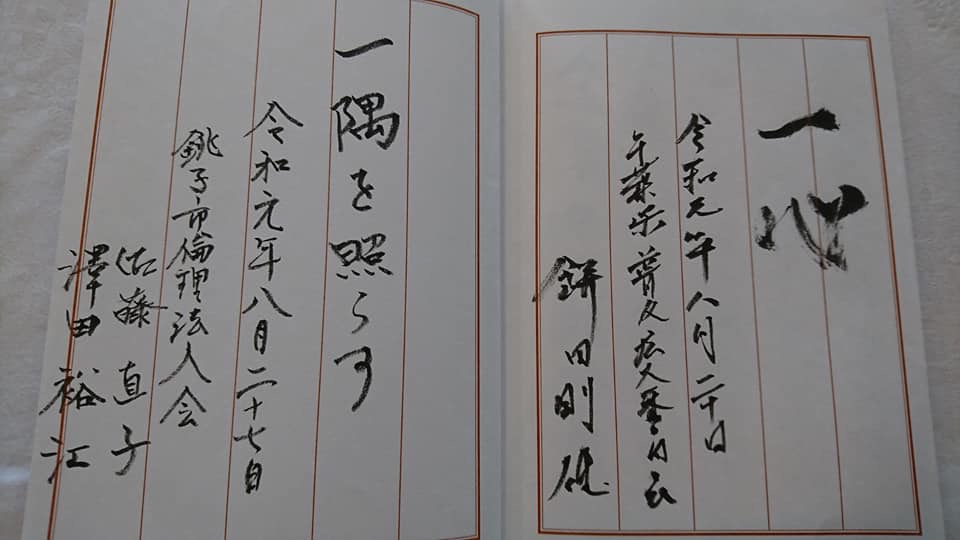 一心
令和元年八月二十日
千葉県 普及
田則
一隅を照らす
令和元年八月二十七日
銚子市倫理法人会
佐藤直子
澤田裕江